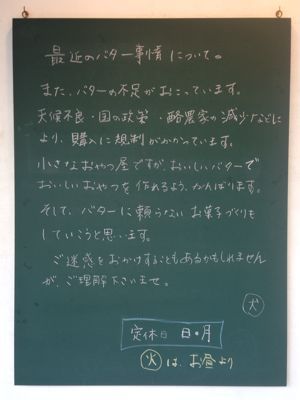 最近のバター事情について。
また、バターの不足がおこっています。
天候不良・国の政策・酪農家の減少などに
より、購入に規制がかかっています。
小さなおやつ屋ですが、おいしいバターで
おいしいおやつを作れるよう、がんばります。
そして、バターに頼らないお菓子づくりも
していこうと思います。
ご迷惑をおかけすることもあるかもしれません
が、ご理解下さいませ。
犬
定休日 日・月
火は、お昼より